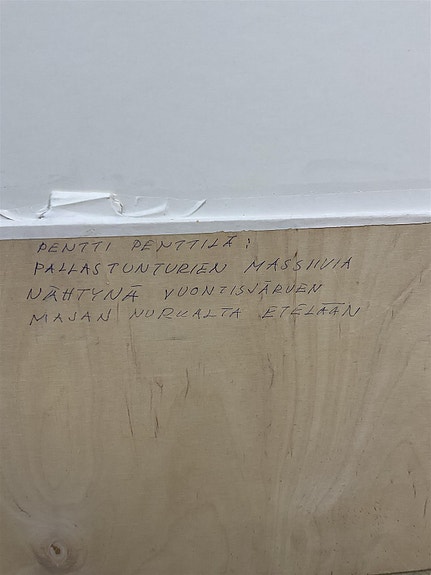 PENTTI PENTTILÄ:
PALLASTUNTURIEN MASSIIVIA
NÄHTYNÄ VUONTISJÄRVEN
MAJAN NURKALTA ETELÄÄN